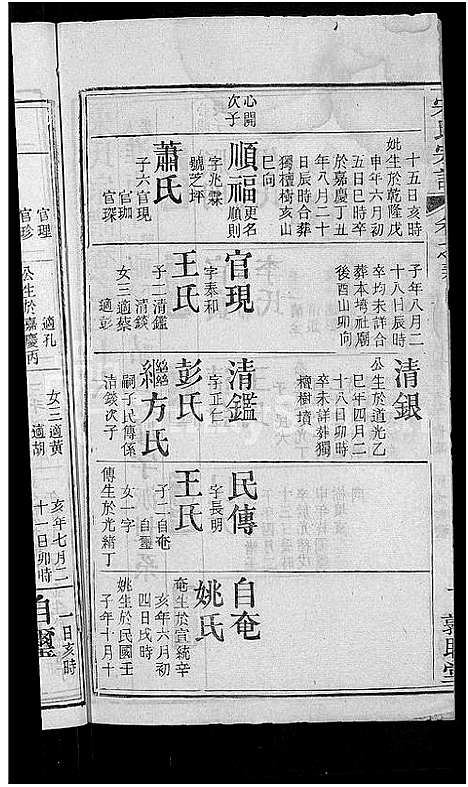 宋氏宗譜
十五日亥時
妣生於乾隆戊
申年六月初
五日巳時卒
於嘉慶丁丑
年八月二十
日辰時合葬
獨檀樹亥山
巳向
心開
次子
順福
更名
順則
字兆霖
號芝坪
蕭氏
子六官現
官珈
官琛
官理
官珍
子年八月二
十八日辰時
卒均未詳合
葬本塆社廟
後酉山卯向
官現
字泰和
王氏
子二清鑑
清錟
女三適蔡
適彭
適孔
公生於嘉慶丙
清銀
公生於道光乙
巳年四月二
十八日卯時
卒未詳葬獨
檀樹墳
清鑑
字正仁
彭氏
繼方氏
嗣子民傳係
清錟次子
女三適黃
適胡
民傳
字長明
王氏
子二自奄
自璽
女一字
傳生於光緒丁
亥年七月二
十一日卯時
自奄
姚氏
奄生於宣統辛
亥年六月初
四日戌時
姚生於民國壬
子年十月十
一日亥時
自璽